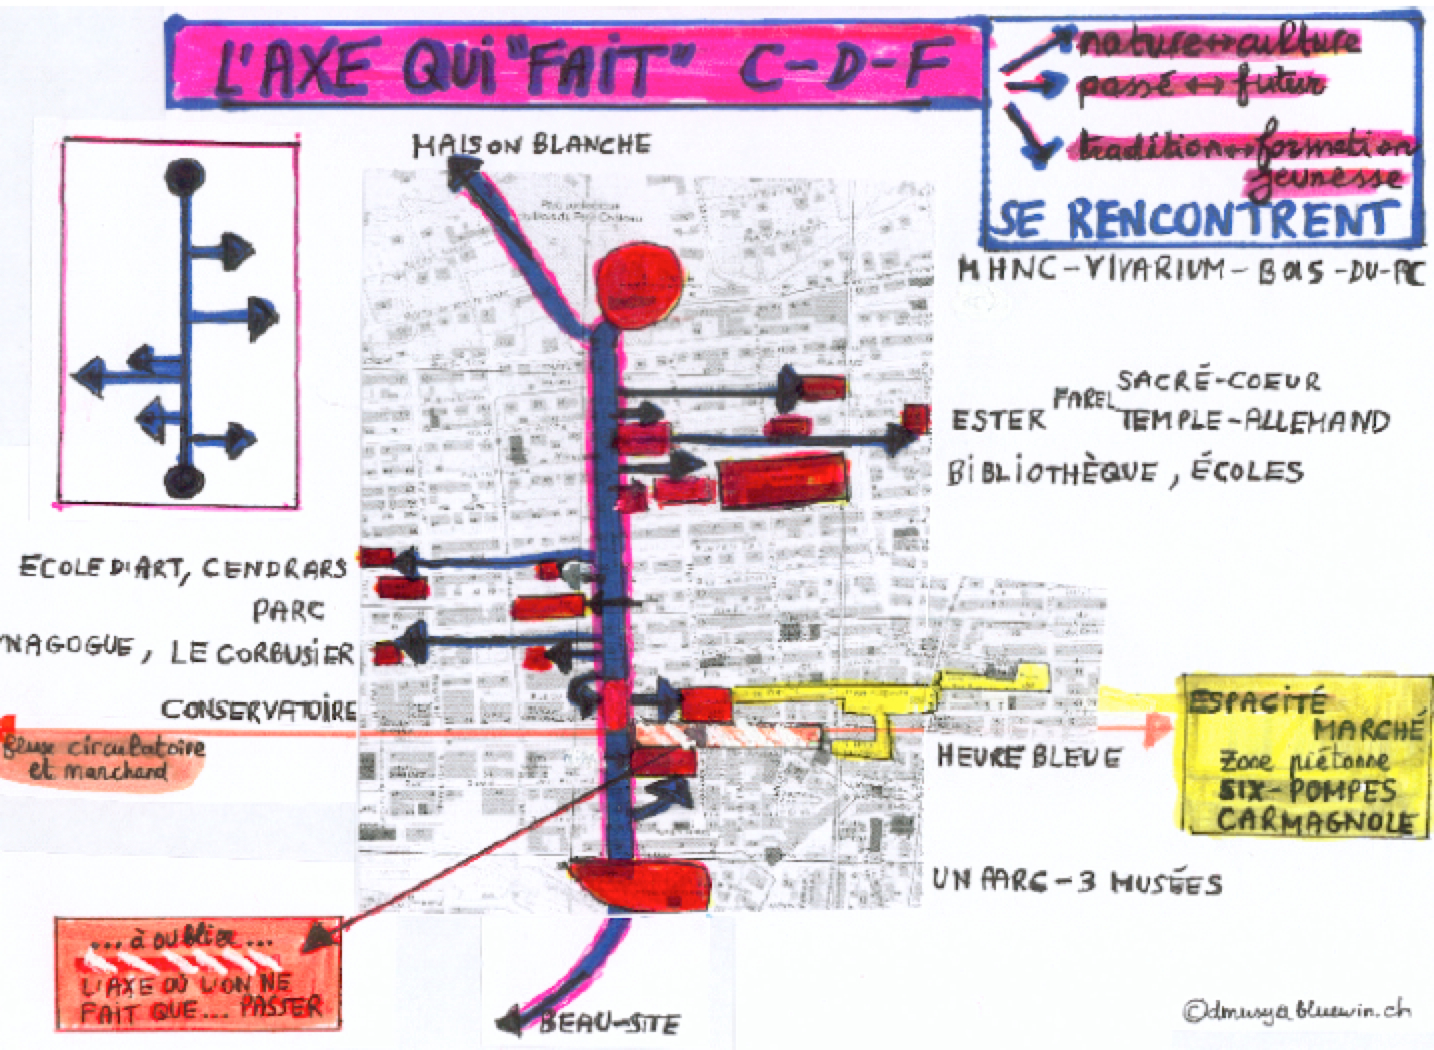 L'AXE QUI "FAIT" C-D-F
nature ↔ culture
passé ↔ futur
tradition ↔ formation
jeunesse
SE RENCONTRENT
MAISON BLANCHE
MHNC - VIVARIUM - BOIS-DU-PC
SACRÉ-COEUR
ESTER FAREL TEMPLE-ALLEMAND
BIBLIOTHÈQUE, ÉCOLES
ECOLE D'ART, CENDRARS
PARC
NAGOGUE, LE CORBUSIER
CONSERVATOIRE
flux circulatoire
et marchand
HEURE BLEUE
ESPACITÉ
MARCHÉ
Zone piétonne
SIX-POMPES
CARMAGNOLE
UN PARC - 3 MUSÉES
... à oublier ...
L'AXE OÙ L'ON NE
FAIT QUE... PASSER
BEAU-SITE
©dmusy@bluewin.ch